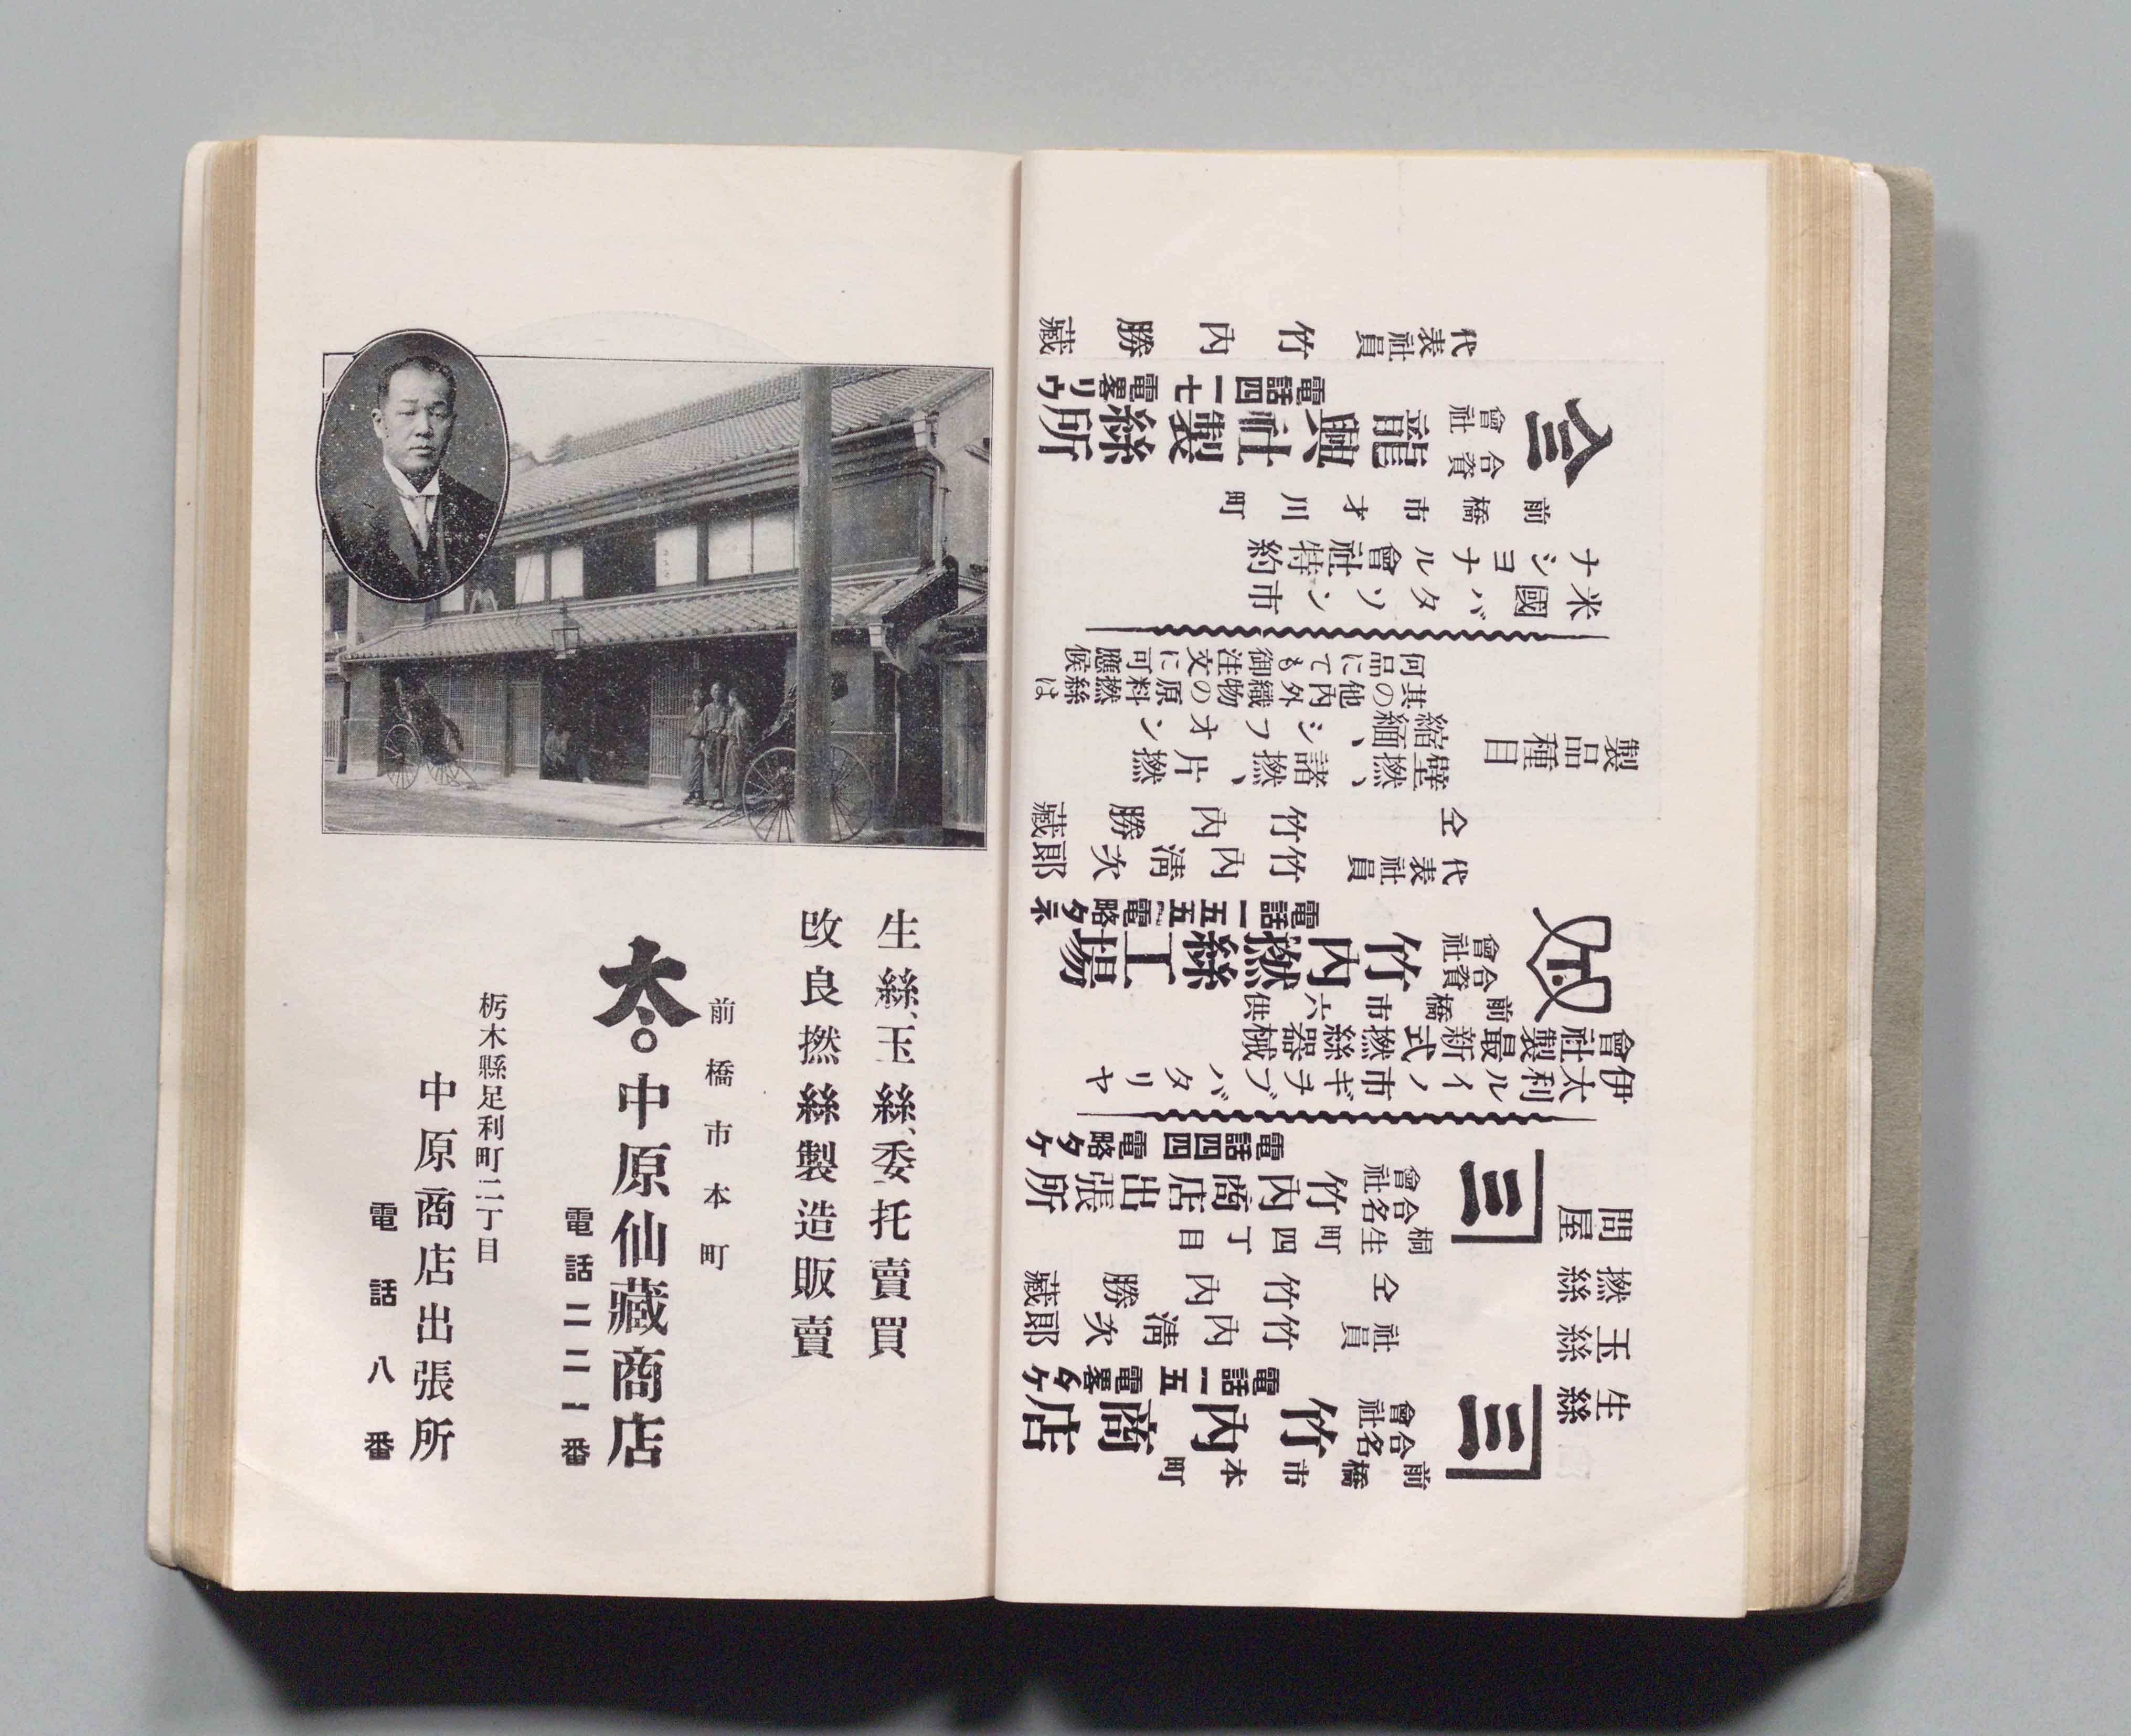 生絲 玉絲 撚絲 問屋
前橋市本町
合名會社 竹內商店
電話一五 電畧タケ
社員 竹內淸次郞
仝 竹內勝藏
桐生町四丁目
合名會社 竹內商店出張所
電話四四 電略タケ
伊太利ルイノ市ギチブバタリヤ
會社製最新式撚絲器械
前橋市六供
合資會社 竹內撚絲工場
電話一五五 電略タネ
代表社員 竹內淸次郞
仝 竹內勝藏
製品種目
壁撚、諸撚、片撚
縮緬、シフオン
其の他內外織物の原料撚絲は
何品にても御注文に可應候
米國バタソン市
ナシヨナル會社特約
前橋市才川町
合資會社 龍興社製絲所
電話四一七 電畧リウ
代表社員 竹內勝藏
生絲、玉絲、委托賣買
改良撚絲製造販賣
前橋市本町
中原仙藏商店
電話二二一番
栃木縣足利町二丁目
中原商店出張所
電話八番